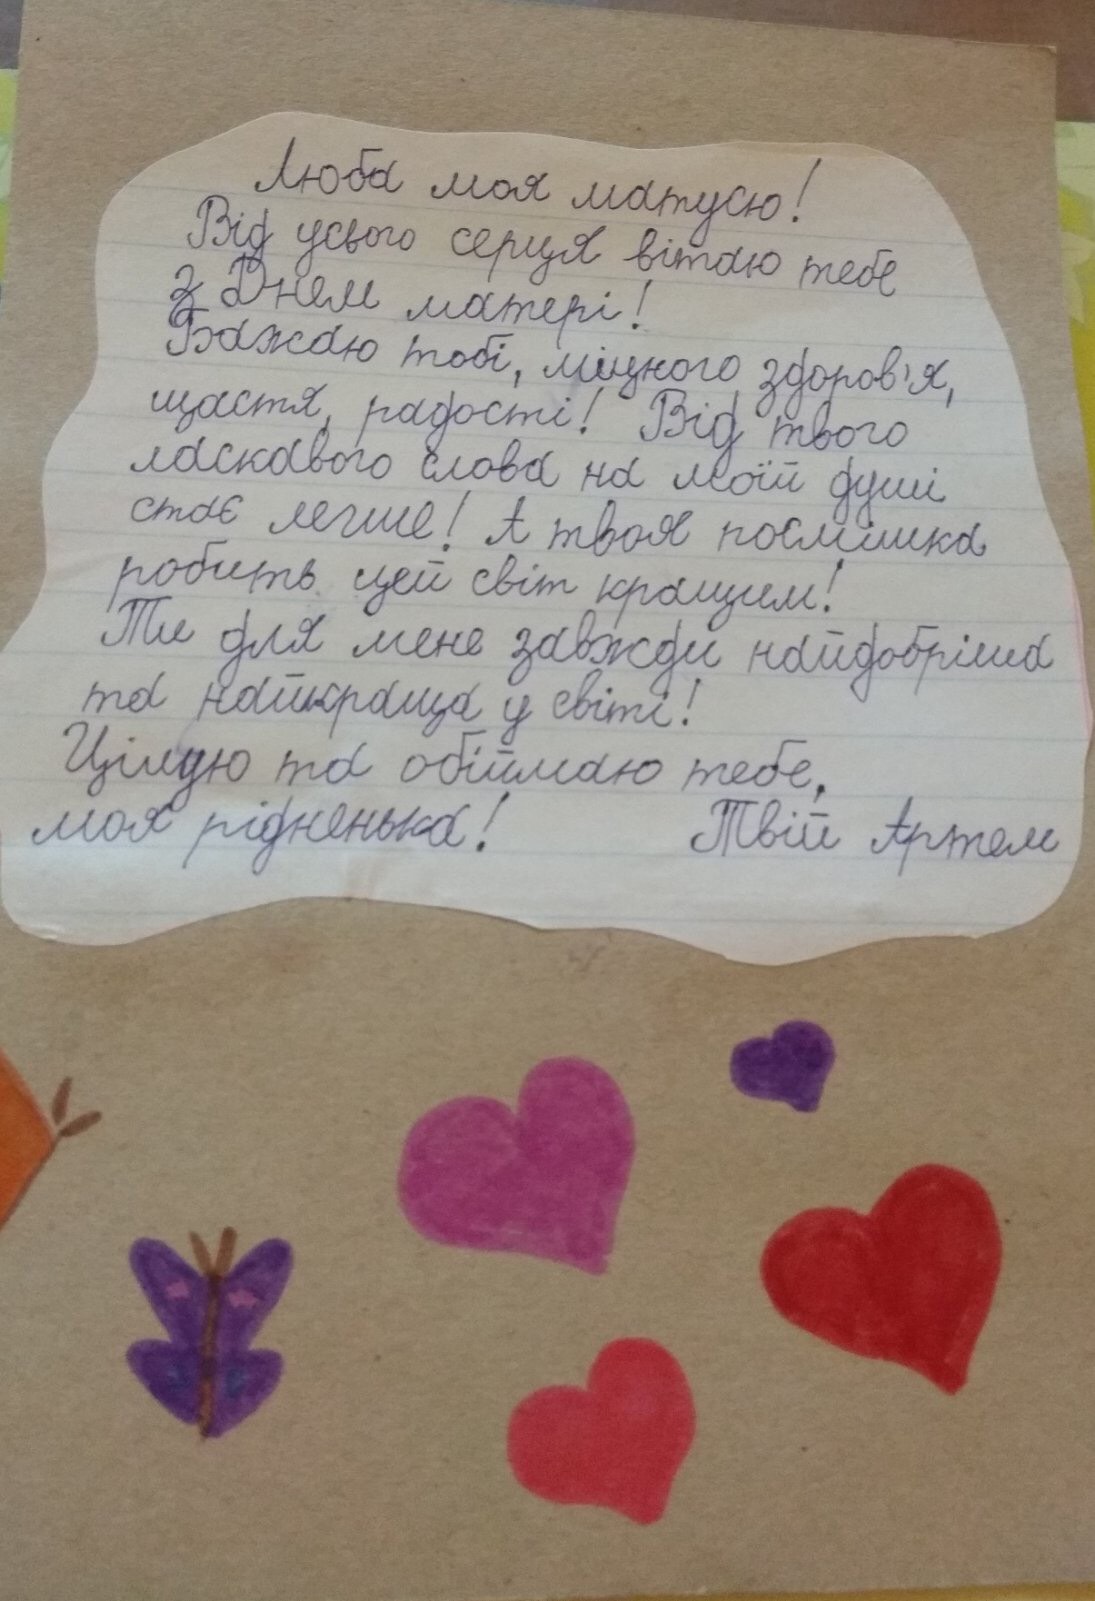 Люба моя матусю!
Від усього серця вітаю тебе
з Днем матері!
Бажаю тобі, міцного здоров'я,
щастя, радості! Від твого
ласкавого слова на моїй душі
стає легше! А твоя посмішка
робить цей світ кращим!
Ти для мене завжди найдобріша
та найкраща у світі!
Цілую та обіймаю тебе,
моя рідненька! Твій Артем